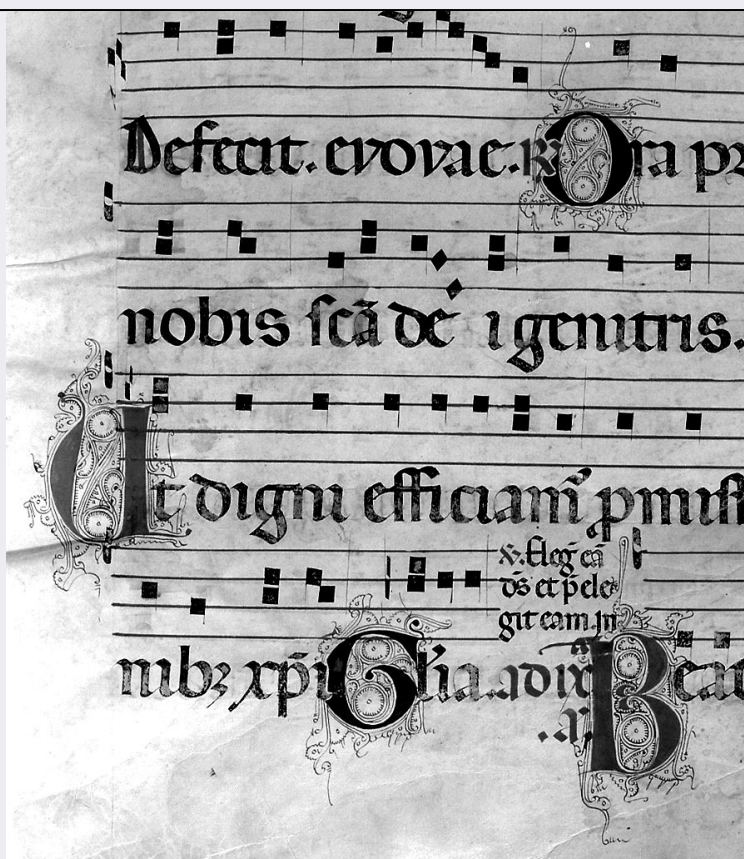 Defecit. evovae. ℟ Ora pr
nobis scā dei genitris.
Ut digni efficiam᷑ ꝓmiss
℣. Eleg̃ eā
ds̄ et p̃ele
git eam in
nibꝫ xp̄i Glia. adix̃
Beat
.a.